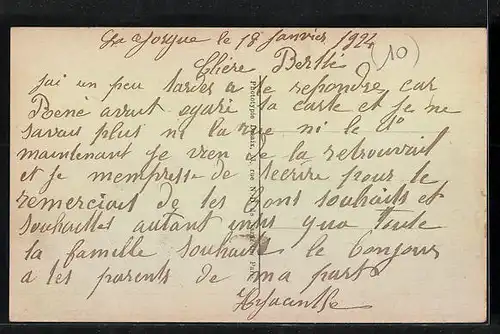 La Gorgue le 18 Janvier 1924
(10)
Chère Berthe
Jai un peu tarder a te repondre car
René avait egaré ta carte et je ne
savais plus ni la rue ni le N°
maintenant je vien de la retrouvait
et je mempresse de tecrire pour te
remerciait de tes bons souhaits et
souhaittes autant insi qua toute
ta famille souhaite le bonjour
a tes parents de ma part
Hyacinthe
Phototypie